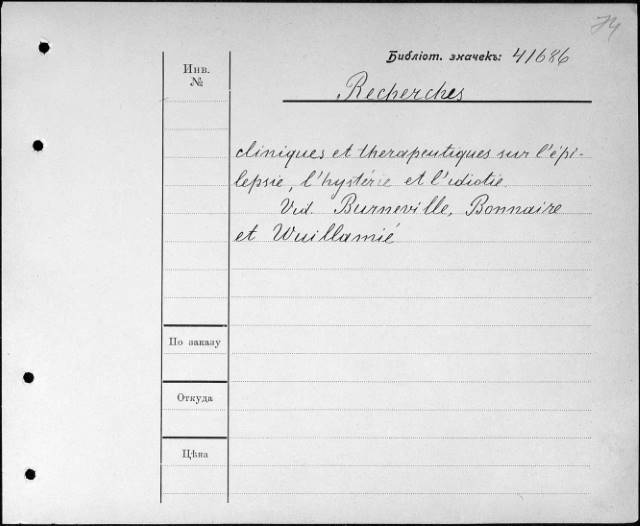 74
Библіот. значекъ: 41686
Инв.
№
Recherches
cliniques et therapeutiques sur l'épi-
lepsie, l'hystérie et l'idiotie.
Vid. Burneville, Bonnaire
et Wuillamié
По заказу
Откуда
Цѣна